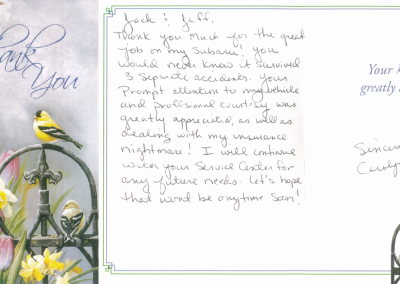 Thank
You
Jack & Jeff,
Thank you much for the great
job on my Subaru! You
would never know it survived
3 separate accidents. Your
prompt attention to my vehicle
and proffisional courtesy was
greatly appreciated, as well as
dealing with my insurance
nightmare! I will continue
with your Service Center for
any future needs. Let's hope
that wont be anytime soon!
Your k
greatly
Sincere
Caroly